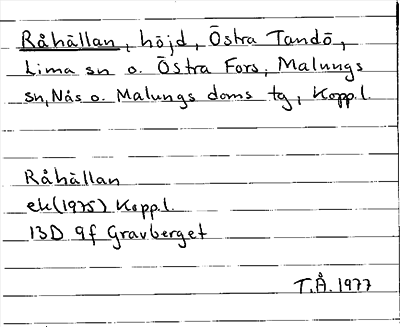 Råhällan, höjd, Östra Tandö,
Lima sn o. Östra Fors, Malungs
sn, Nås o. Malungs doms tg, Kopp.l.
Råhällan
ek (1975) Kopp.l.
13D 9f Gravberget
T.Å. 1977